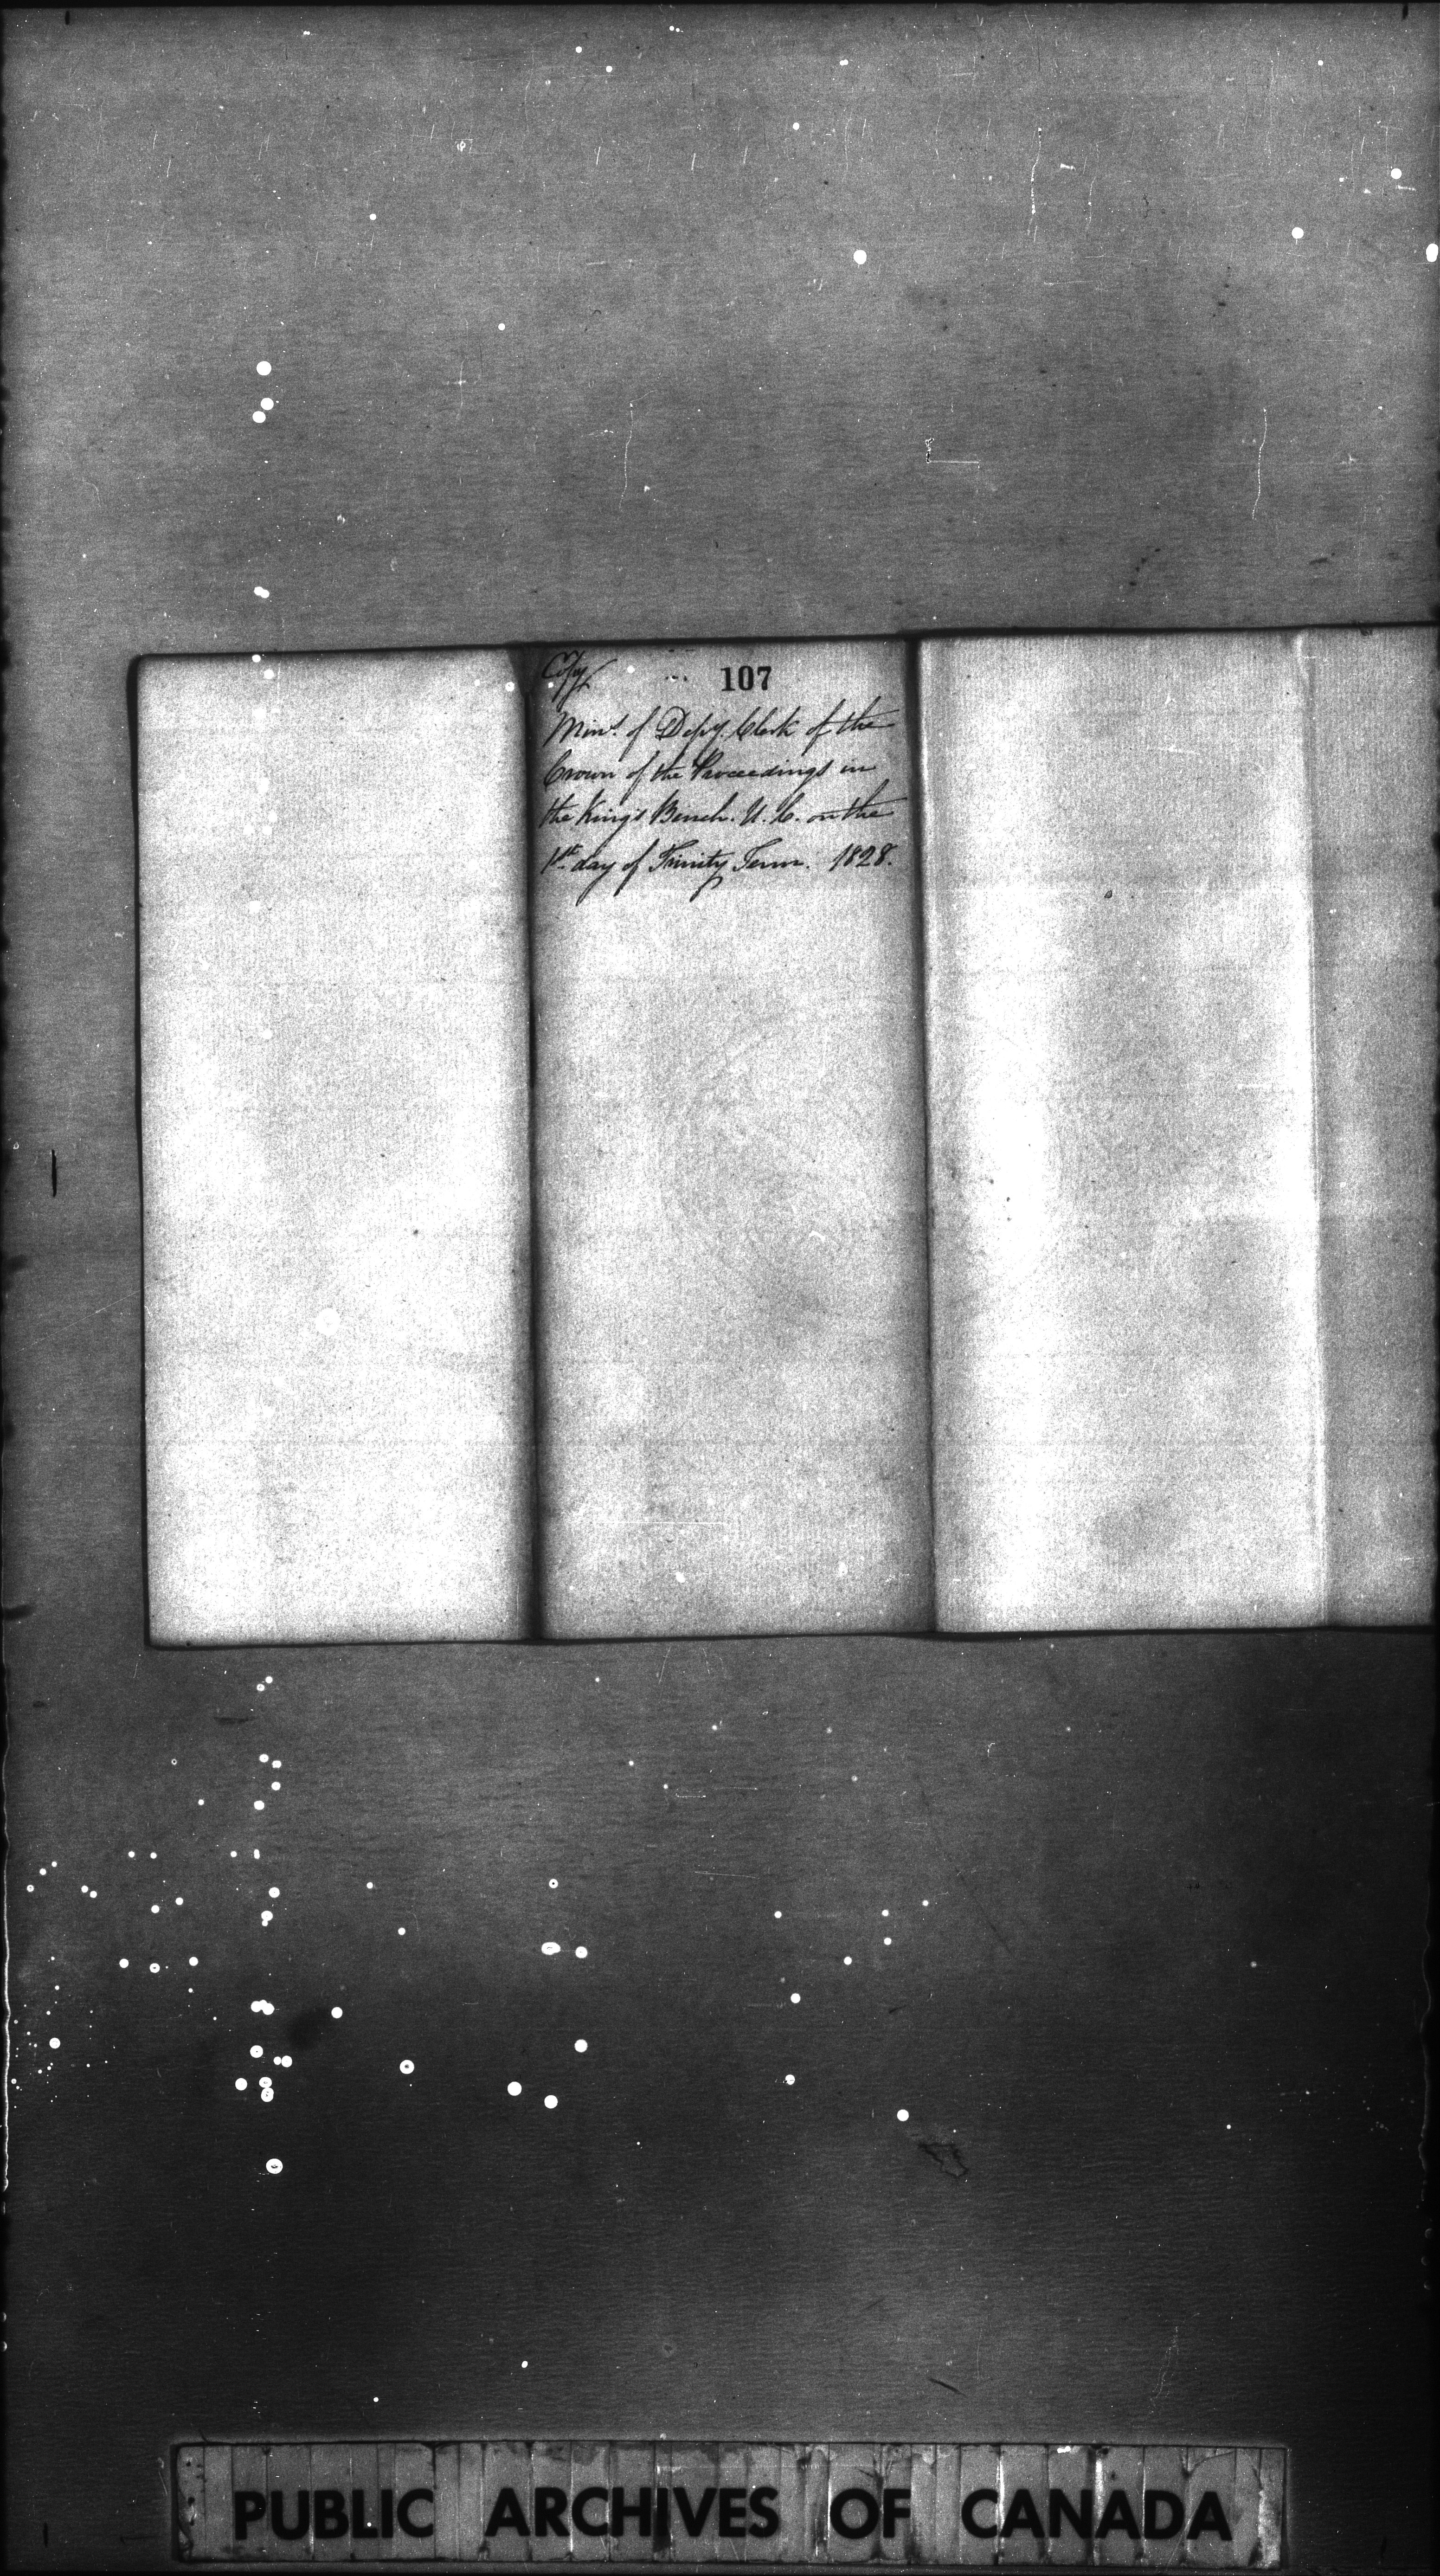 Copy
107
Mints. of Depy. Clerk of the
Crown of the Proceedings in
the King's Bench. U. C. on the
1st day of Trinity Term. 1828.
PUBLIC ARCHIVES OF CANADA